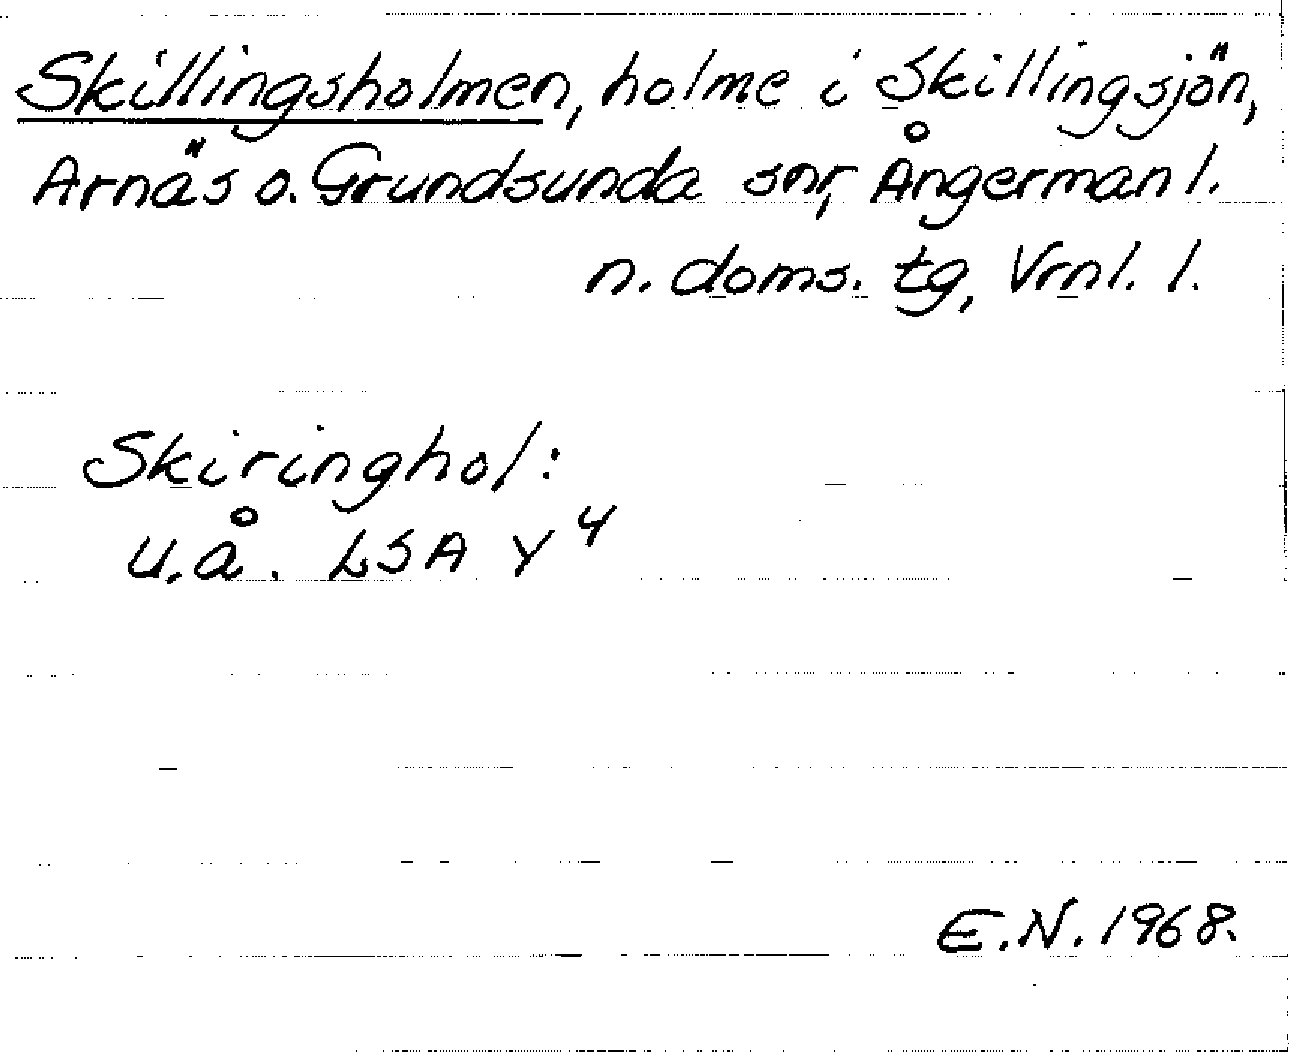 Skillingsholmen, holme i Skillingsjön,
Arnäs o. Grundsunda snr, Ångermanl.
n. doms. tg, Vrnl. l.
Skiringhol:
u.å. LSA Y⁴
E.N. 1968.